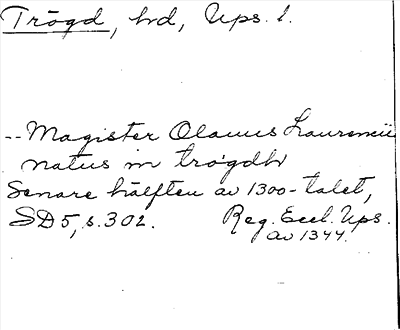 Trögd, hd, Ups. l.
-- Magister Olauus Laurencii
natus in trögdh
Senare hälften av 1300-talet,
SD 5, s. 302. Reg. Eccl. Ups.
av 1344.